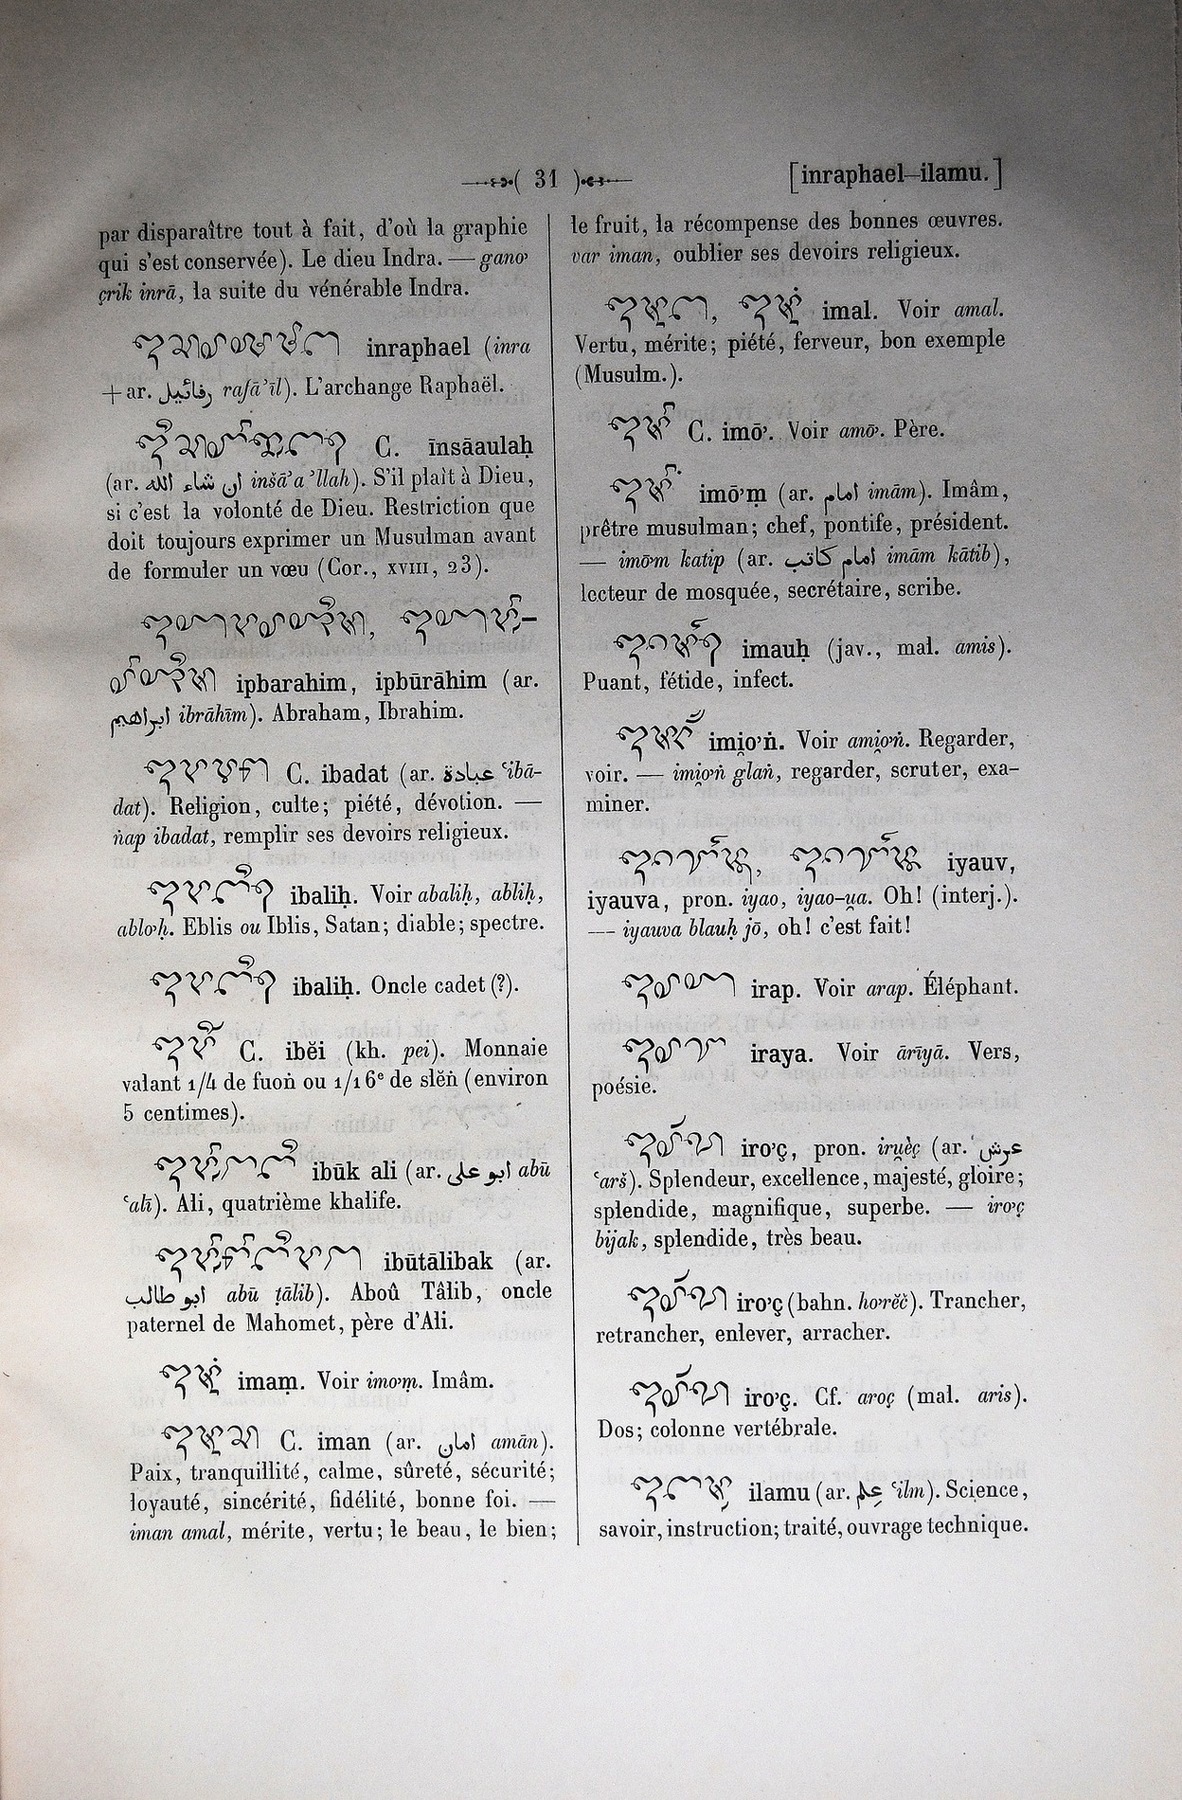 ( 31 )
[inraphael–ilamu.]
par disparaître tout à fait, d'où la graphie
qui s'est conservée). Le dieu Indra. — gano’
çrik inrā, la suite du vénérable Indra.
inraphael (inra
+ ar. رفائيل rafā’īl). L'archange Raphaël.
C. īnsāaulaḥ
(ar. ان شاء الله inšā’a ’llah). S'il plaît à Dieu,
si c'est la volonté de Dieu. Restriction que
doit toujours exprimer un Musulman avant
de formuler un vœu (Cor., XVIII, 23).
ipbarahim, ipbūrāhim (ar.
ابراهيم ibrāhīm). Abraham, Ibrahim.
C. ibadat (ar. عبادة ‘ibā-
dat). Religion, culte; piété, dévotion. —
ṅap ibadat, remplir ses devoirs religieux.
ibaliḥ. Voir abaliḥ, abliḥ,
ablo’ḥ. Eblis ou Iblis, Satan; diable; spectre.
ibaliḥ. Oncle cadet (?).
C. ibĕi (kh. pei). Monnaie
valant 1/4 de fuoṅ ou 1/16e de slĕṅ (environ
5 centimes).
ibūk ali (ar. ابو على abū
‘alī). Ali, quatrième khalife.
ibūtālibak (ar.
ابو طالب abū ṭālib). Aboû Tâlib, oncle
paternel de Mahomet, père d'Ali.
imaṃ. Voir imo’ṃ. Imâm.
C. iman (ar. امان amān).
Paix, tranquillité, calme, sûreté, sécurité;
loyauté, sincérité, fidélité, bonne foi. —
iman amal, mérite, vertu; le beau, le bien;
le fruit, la récompense des bonnes œuvres.
var iman, oublier ses devoirs religieux.
imal. Voir amal.
Vertu, mérite; piété, ferveur, bon exemple
(Musulm.).
C. imō’. Voir amō’. Père.
imō’ṃ (ar. امام imām). Imâm,
prêtre musulman; chef, pontife, président.
— imō’m katip (ar. امام كاتب imām kātib),
lecteur de mosquée, secrétaire, scribe.
imauḥ (jav., mal. amis).
Puant, fétide, infect.
imi̯o’ṅ. Voir ami̯o’ṅ. Regarder,
voir. — imi̯o’ṅ glaṅ, regarder, scruter, exa-
miner.
iyauv,
iyauva, pron. iyao, iyao-u̯a. Oh! (interj.).
— iyauva blauḥ jō, oh! c'est fait!
irap. Voir arap. Éléphant.
iraya. Voir ārīyā. Vers,
poésie.
iro’ç, pron. iru̯èç (ar. عرش
‘arš). Splendeur, excellence, majesté, gloire;
splendide, magnifique, superbe. — iro’ç
bijak, splendide, très beau.
iro’ç (bahn. ho’rĕč). Trancher,
retrancher, enlever, arracher.
iro’ç. Cf. aroç (mal. aris).
Dos; colonne vertébrale.
ilamu (ar. علم ‘ilm). Science,
savoir, instruction; traité, ouvrage technique.